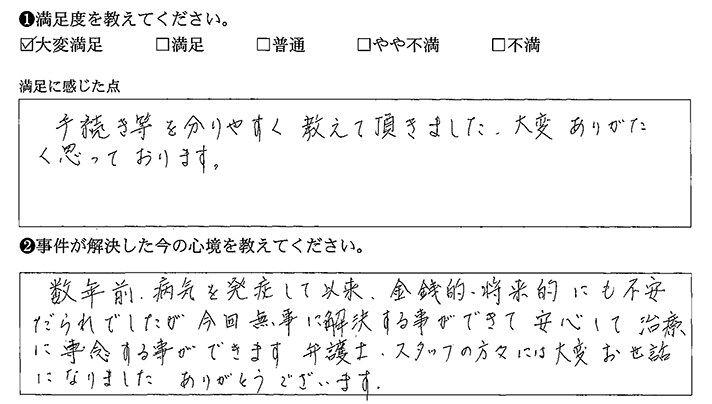 ❶満足度を教えてください。
☑大変満足 □満足 □普通 □やや不満 □不満
満足に感じた点
手続き等を分りやすく教えて頂きました、大変ありがた
く思っております。
❷事件が解決した今の心境を教えてください。
数年前、病気を発症して以来、金銭的、将来的にも不安
だられでしたが今回無事に解決する事ができて安心して治療
に専念する事ができます 弁護士、スタッフの方々には大変お世話
になりました ありがとうございます.